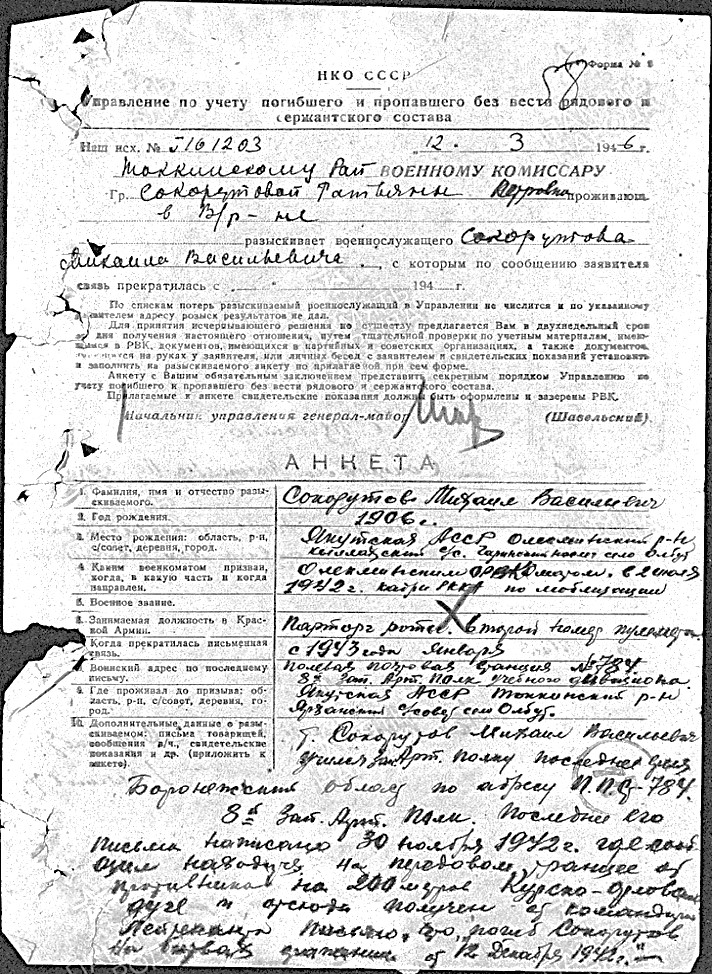 Форма № 2
58
НКО СССР
Управление по учету погибшего и пропавшего без вести рядового и
сержантского состава
Наш исх. № 1161203 "12." 3 1946 г.
Токкинскому Рай ВОЕННОМУ КОМИССАРУ
Гр. Сокорутовой Татьяны Петровна проживающ.
в В/р-не
разыскивает военнослужащего Сокорутова
Михаила Васильевича, с которым по сообщению заявителя
связь прекратилась с " " 194 г.
По спискам потерь разыскиваемый военнослужащий в Управлении не числится и по указанному
заявителем адресу розыск результатов не дал.
Для принятия исчерпывающего решения по существу предлагается Вам в двухнедельный срок
со дня получения настоящего отношения, путем тщательной проверки по учетным материалам, имею-
щимся в РВК, документов, имеющихся в партийных и советских организациях, а также документов,
имеющихся на руках у заявителя, или личных бесед с заявителем и свидетельских показаний установить
и заполнить на разыскиваемого анкету по прилагаемой при сем форме.
Анкету с Вашим обязательным заключением представить секретным порядком Управлению по
учету погибшего и пропавшего без вести рядового и сержантского состава.
Прилагаемые к анкете свидетельские показания должны быть оформлены и заверены РВК.
Начальник управления генерал-майор (Шавельский).
АНКЕТА
1. Фамилия, имя и отчество разы-
скиваемого. Сокорутов Михаил Василиевич
2. Год рождения. 1906 г.
3. Место рождения: область, р-н, Якутская АССР Олекминский р-н
с/совет, деревня, город. с/с. село Олбут
4. Каким военкоматом призван, Олекминским
когда, в какую часть и когда в 2 июля
направлен. 1942 г. кадры РККА по мобилизации
5. Военное звание.
6. Занимаемая должность в Крас-
ной Армии. Парторг роты. второй номер пулемета
7. Когда прекратилась письменная
связь. с 1943 года Января
8. Воинский адрес по последнему полевая почтовая станция № 784
письму. 8й Зап. Арт. Полк учебного дивизиона.
9. Где проживал до призыва: об- Якутская АССР Токкинский р-н
ласть, р-н, с/совет, деревня, го-
род. с/совет село Олбут.
10. Дополнительные данные о разы-
скиваемом: письма товарищей, т. Сокорутов Михаил Васильевич
сообщения в/ч., свидетельские
показания и др. (приложить к Зап. Арт. полку последнее
анкете).
Воронежский по адресу П.П.С-784.
8й Зап. Арт. Полк. Последнее его
письма написано 30 ноября 1942 г. где сооб-
щил находится на передовом от
противника на 200 метров Курско-Орлов
дуге и отсюда получен от командира
Лейтенанта письмо, что погиб Сокорутов
на первая сражении от 12 Декабря 1942 г."